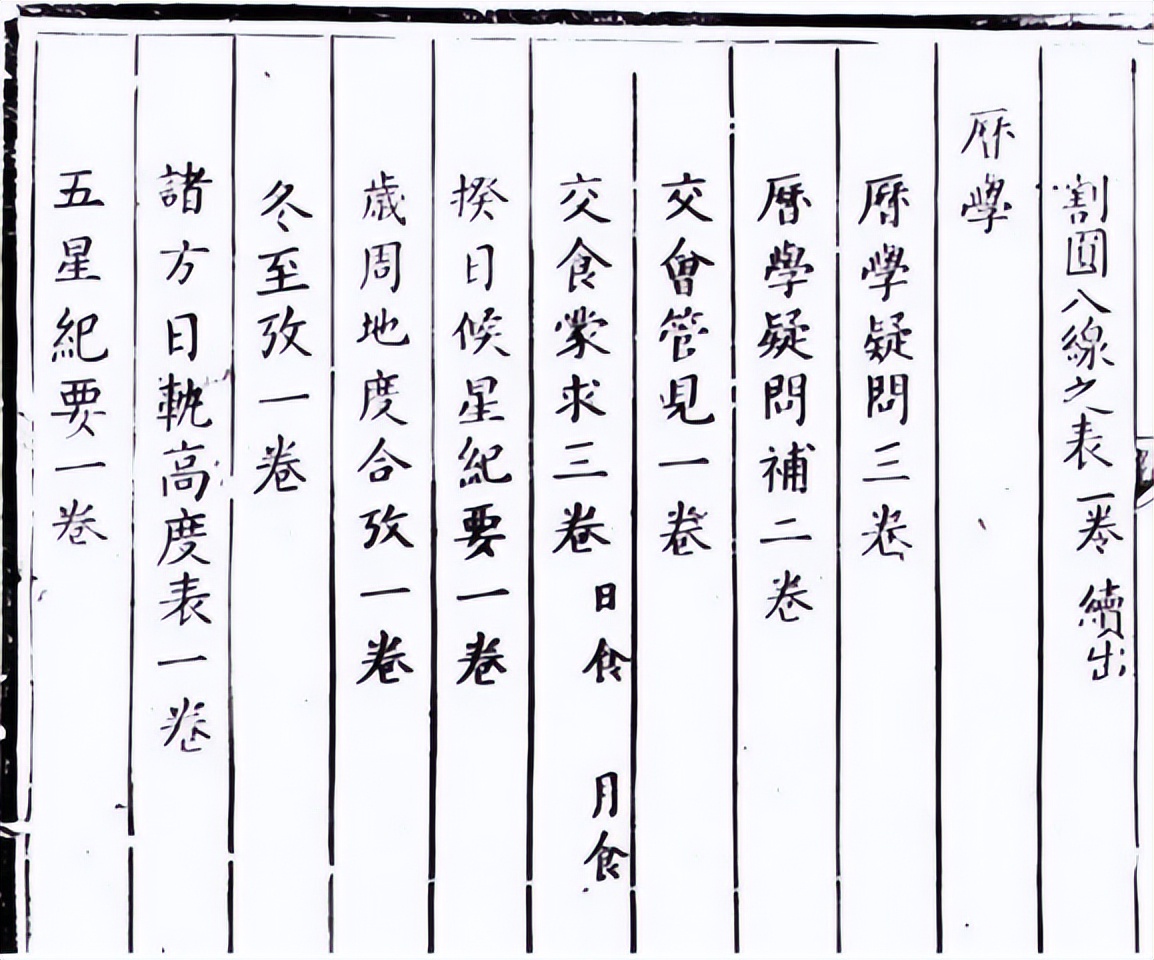 割圓八線之表一卷 續出
厤學
曆學疑問三卷
曆學疑問補二卷
交會管見一卷
交食蒙求三卷 日食 月食
揆日候星紀要一卷
歲周地度合攷一卷
冬至攷一卷
諸方日軌高度表一卷
五星紀要一卷